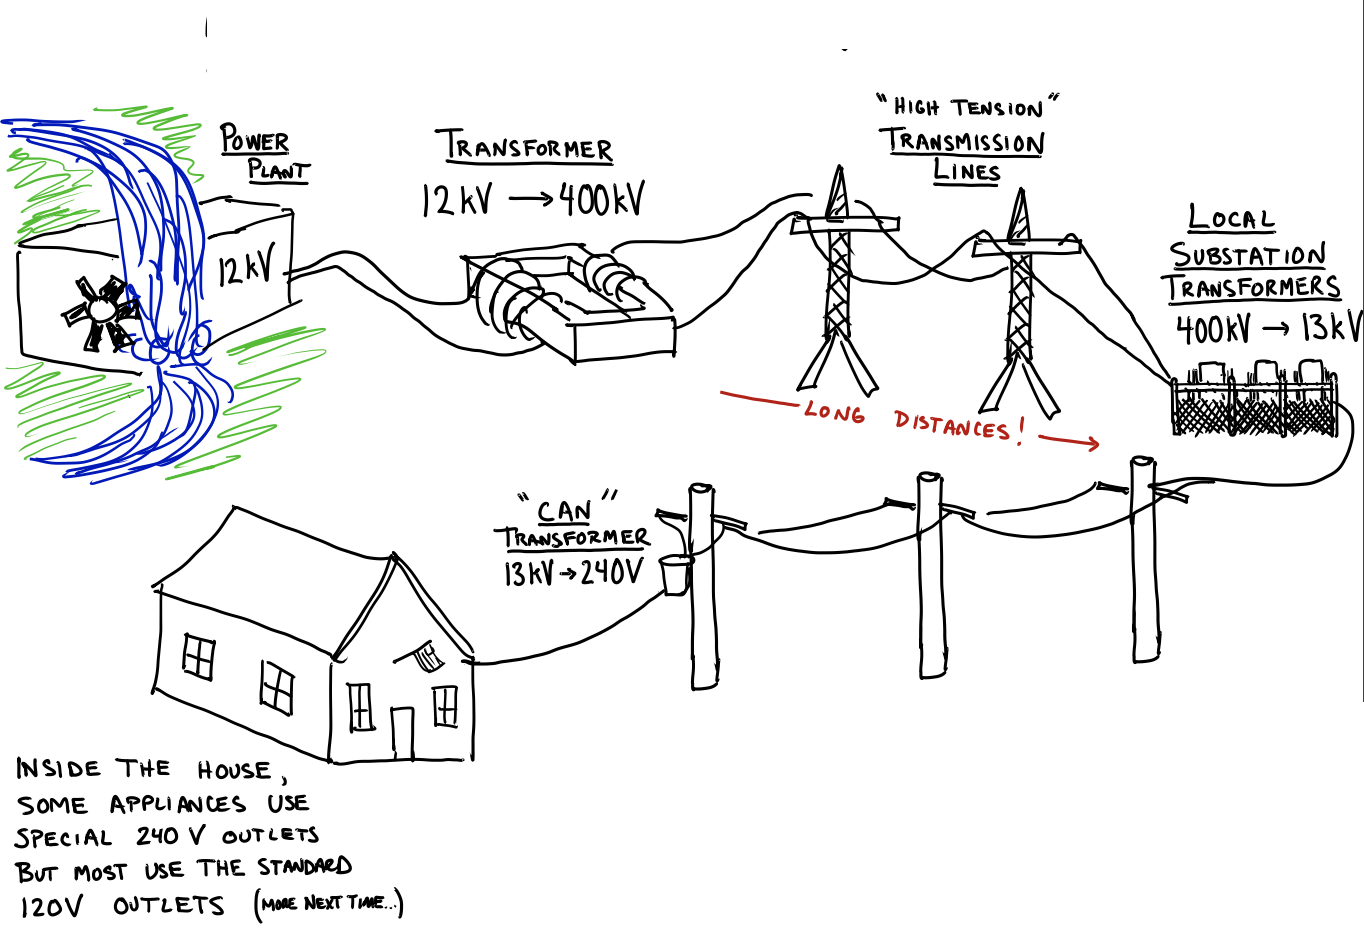 POWER
PLANT
12kV
TRANSFORMER
12kV → 400kV
"HIGH TENSION"
TRANSMISSION
LINES
LONG DISTANCES!
LOCAL
SUBSTATION
TRANSFORMERS
400kV → 13kV
"CAN"
TRANSFORMER
13kV → 240V
INSIDE THE HOUSE,
SOME APPLIANCES USE
SPECIAL 240 V OUTLETS
BUT MOST USE THE STANDARD
120V OUTLETS (MORE NEXT TIME...)